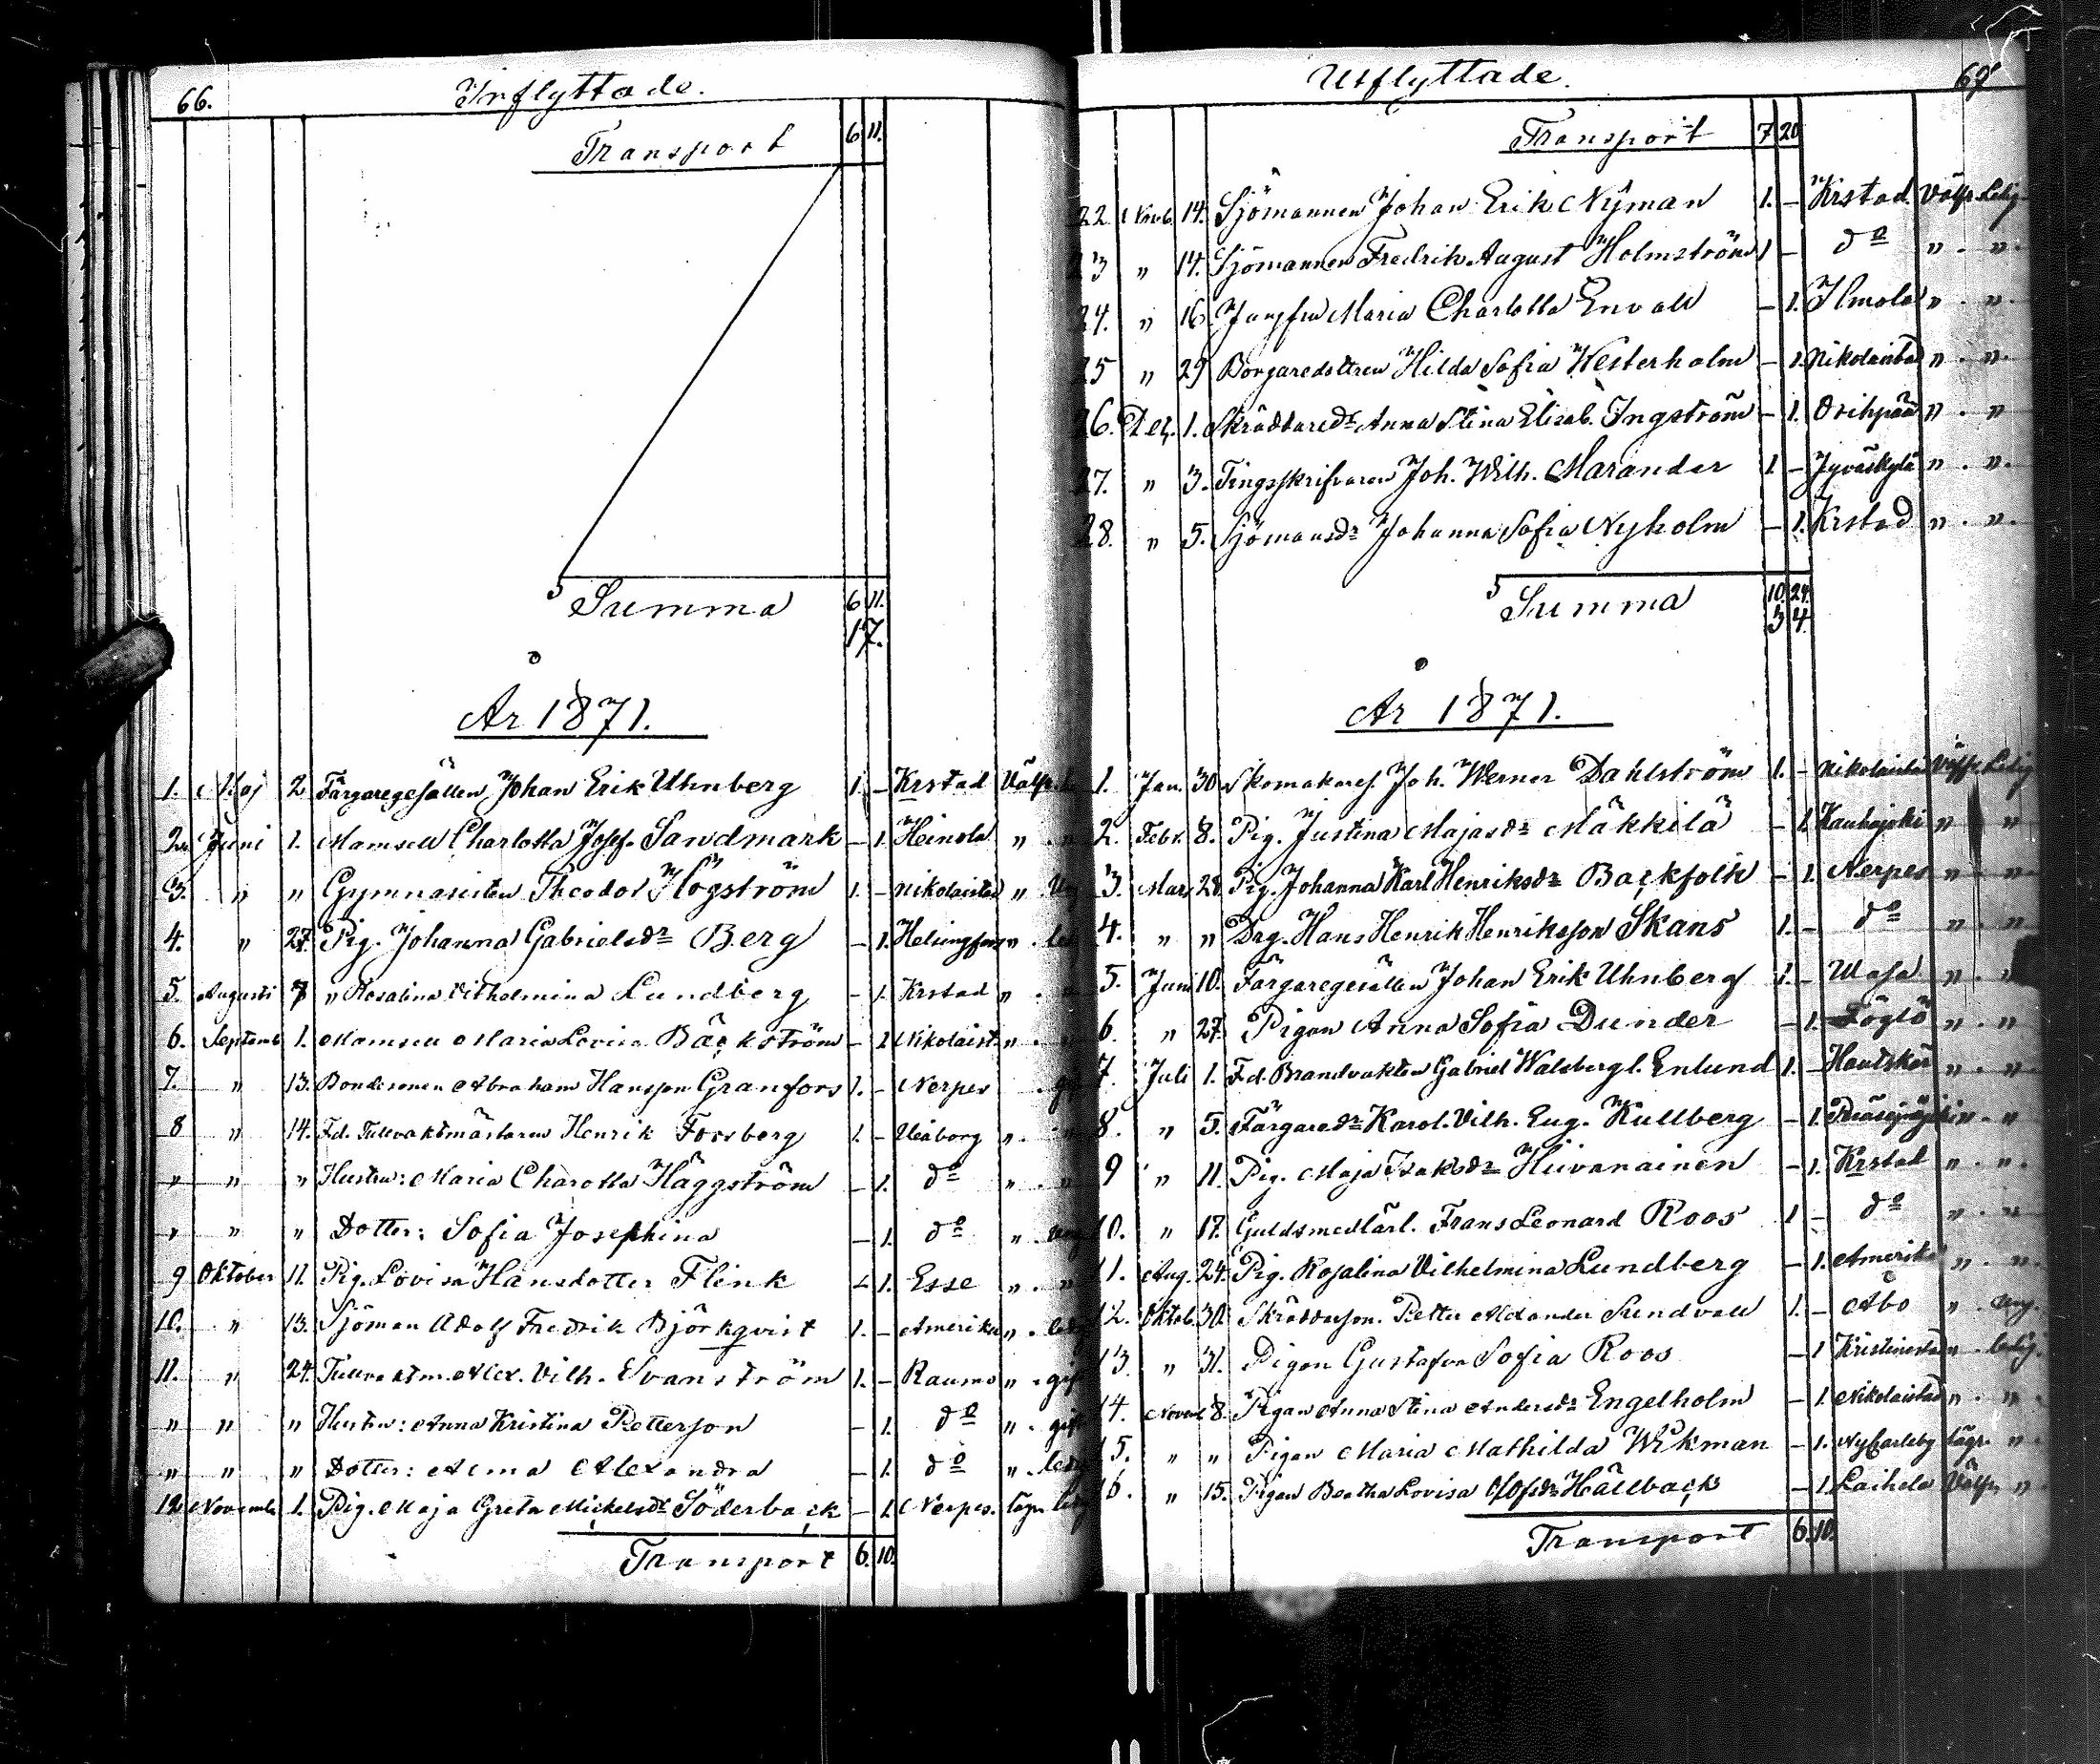 66.
Inflyttade.
Transport 6 11.
Summa 6 11.
17.
År 1871.
1. Maj 2 Färgaregesällen Johan Erik Uhnberg 1. – Krstad Välfr.
2. Juni 1. Mamsell Charlotta Josef. Sandmark – 1. Heinola " "
3. " " Gymnasisten Theodor Högström 1. – Nikolaistad " Ung
4. " 27. Pig. Johanna Gabrielsdr Berg – 1. Helsingfors " led
5. Augusti 7 " Rosalina Vilhelmina Lundberg – 1. Krstad " "
6. Septemb 1. Mamsell Maria Lovisa Bäckström – 1 Nikolaist. " "
7. " 13. Bondesonen Abraham Hansson Granfors 1. – Nerpes gift
8 " 14. Fd. Tullvaktmästaren Henrik Forsberg 1. – Uleåborg " "
" " " Hustru: Maria Charotta Häggström – 1. do " "
" " " Dotter: Sofia Josephina – 1. do " ung
9 Oktober 11. Pig. Lovisa Hansdotter Flink – 1. Esse " "
10. " 13. Sjöman Adolf Fredrik Björkqvist 1. – Amerika " ledig
11. " 24. Tullvaktm. Alex. Vilh. Evanström 1. – Raumo " gift
" " " Hustru: Anna Kristina Petterson – 1. do " gift
" " " Dotter: Alma Alexandra – 1. do " ledig
12. Novemb. 1. Pig. Maja Greta Mickelsdr Söderback – 1. Nerpes. lägr ledig
Transport 6. 10.
Utflyttade.
67
Transport 7 20
22. Novb. 14. Sjömannen Johan Erik Nyman 1. – Krstad. Välfr. Ledig
23 " 14. Sjömannen Fredrik August Holmström 1 – do " "
24. " 16 Jungfru Maria Charlotta Envall – 1. Ilmola " "
25 " 29 Borgaredottren Hilda Sofia Westerholm – 1. Nikolaistad " "
26. Dec. 1. Skräddaredr Anna Stina Elisab. Ingström – 1. Orihpää " "
27. " 3. Tingsskrifvaren Joh. Wilh. Marander 1 – Jyväskylä " "
28. " 5. Sjömansdr Johanna Sofia Nyholm – 1. Krstad " "
Summa 10. 24.
3 4.
År 1871.
1. Jan. 30 Skomakares. Joh. Werner Dahlström 1. – Nikolaistad Välfr. Ledig
2. Febr. 8. Pig. Justina Majasdr Mäkkilä – 1. Kauhajoki " "
3. Mars 28 Pig. Johanna Karl Henriksdr Backfolk – 1. Nerpes " "
4. " " Drg. Hans Henrik Henriksson Skans 1. – do " "
5. Juni 10. Färgaregesällen Johan Erik Uhnberg 1. – Wasa " "
6. " 27. Pigan Anna Sofia Dunder – 1. Föglö " "
7. Juli 1. Fd. Brandvakten Gabriel Walsberg l. Enlund 1. – Houtskär " "
8. " 5. Färgaredr Karol. Vilh. Eug. Kullberg – 1. Peräseinäjoki " "
9 " 11. Pig. Maja Isaksdr Hiivanainen – 1. Krstad " "
10. " 17. Guldsmedlärl. Frans Leonard Roos 1 – do " "
11. Aug. 24. Pig. Rosalina Vilhelmina Lundberg – 1. Amerika " "
12. Oktob. 30. Skräddarson. Petter Alexander Sundvall 1. – Åbo " ung.
13. " 31. Pigan Gustafva Sofia Roos – 1 Kristinestad " ledig.
14. Novemb 8. Pigan Anna Stina Andersdr Engelholm – 1. Nikolaistad " "
15. " " Pigan Maria Mathilda Wikman – 1. Nykarleby lägr. "
16. " 15. Pigan Beatha Lovisa Olofsdr Hällback – 1. Laihela Välfr. "
Transport 6. 10.